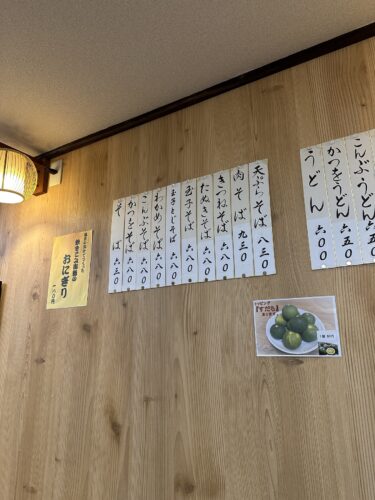 こんぶうどん 六五
かつをうどん 六五〇
うどん 六〇〇
天ぷらそば 八三〇
肉そば 九三〇
きつねそば 六八〇
たぬきそば 六八〇
玉子そば 六八〇
玉子とじそば 六八〇
わかめそば 六八〇
こんぶそば 六八〇
かつをそば 六八〇
そば 六三〇
おにぎり
一八〇円
トッピング
『すだち』